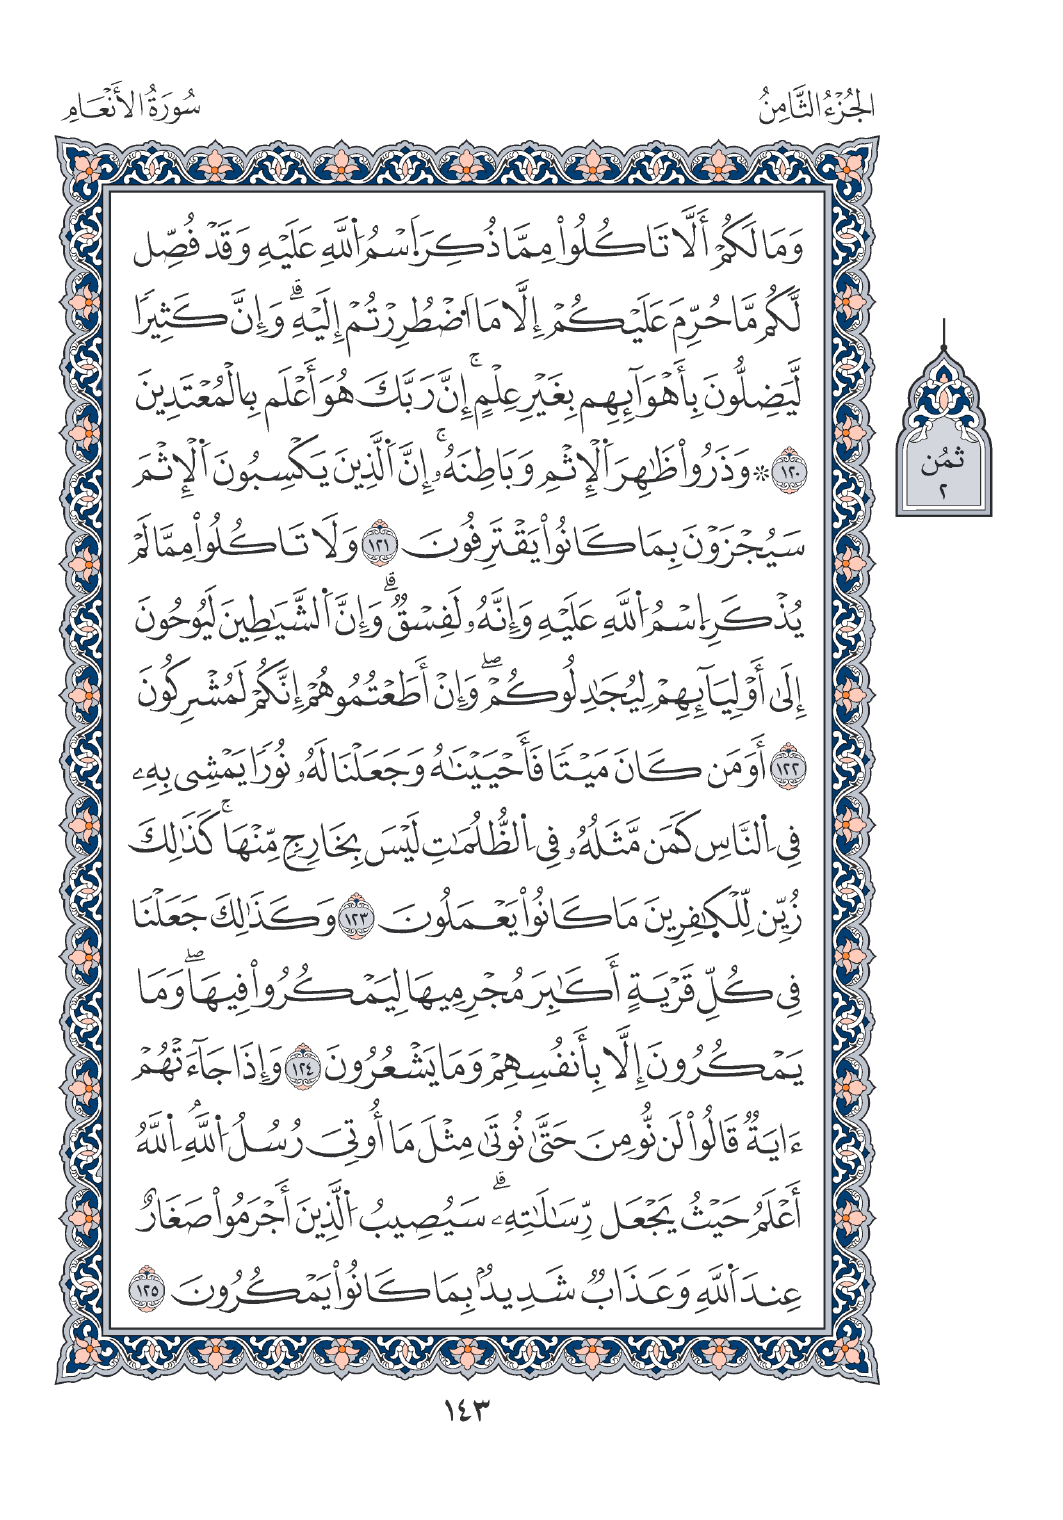 الجُزْءُ الثَّامِنُ
سُورَةُ الأَنْعَامِ
وَمَا لَكُمْ أَلَّا تَاكُلُواْ مِمَّا ذُكِرَ اَسْمُ اُللَّهِ عَلَيْهِ وَقَدْ فُصِّل
لَّكُم مَّا حُرِّمَ عَلَيْكُمْ إِلَّا مَا اَضْطُرِرْتُمْ إِلَيْهِۗ وَإِنَّ كَثِيرٗا
لَّيَضِلُّونَ بِأَهْوَآئِهِم بِغَيْرِ عِلْمٍۚ إِنَّ رَبَّكَ هُوَ أَعْلَم بِالْمُعْتَدِينَ
١٢٠ ۞ وَذَرُواْ ظَٰهِرَ اَلْإِثْمِ وَبَاطِنَهُۥۚ إِنَّ اَلَّذِينَ يَكْسِبُونَ اَلْإِثْمَ
سَيُجْزَوْنَ بِمَا كَانُواْ يَقْتَرِفُونَ ١٢١ وَلَا تَاكُلُواْ مِمَّا لَمْ
يُذْكَرِ اِسْمُ اُللَّهِ عَلَيْهِ وَإِنَّهُۥ لَفِسْقٞۗ وَإِنَّ اَلشَّيَٰطِينَ لَيُوحُونَ
إِلَىٰ أَوْلِيَآئِهِمْ لِيُجَٰدِلُوكُمْۖ وَإِنْ أَطَعْتُمُوهُمْ إِنَّكُمْ لَمُشْرِكُونَ
١٢٢ أَوَمَن كَانَ مَيْتٗا فَأَحْيَيْنَٰهُ وَجَعَلْنَا لَهُۥ نُورٗا يَمْشِى بِهِۦ
فِى اِلنَّاسِ كَمَن مَّثَلُهُۥ فِى اِلظُّلُمَٰتِ لَيْسَ بِخَارِجٖ مِّنْهَاۚ كَذَٰلِكَ
زُيِّن لِّلْكٰفِرِينَ مَا كَانُواْ يَعْمَلُونَ ١٢٣ وَكَذَٰلِكَ جَعَلْنَا
فِى كُلِّ قَرْيَةٍ أَكَٰبِرَ مُجْرِمِيهَا لِيَمْكُرُواْ فِيهَاۖ وَمَا
يَمْكُرُونَ إِلَّا بِأَنفُسِهِمْ وَمَا يَشْعُرُونَ ١٢٤ وَإِذَا جَآءَتْهُمْ
ءَايَةٞ قَالُواْ لَن نُّومِنَ حَتَّىٰ نُوتَىٰ مِثْلَ مَا أُوتِىَ رُسُلُ اُللَّهِۘ اِللَّهُ
أَعْلَمُ حَيْثُ يَجْعَل رِّسَالَٰتِهِۦۗ سَيُصِيبُ اُلَّذِينَ أَجْرَمُواْ صَغَارٌ
عِندَ اَللَّهِ وَعَذَابٞ شَدِيدُۢ بِمَا كَانُواْ يَمْكُرُونَ ١٢٥
ثُمُن
٢
١٤٣